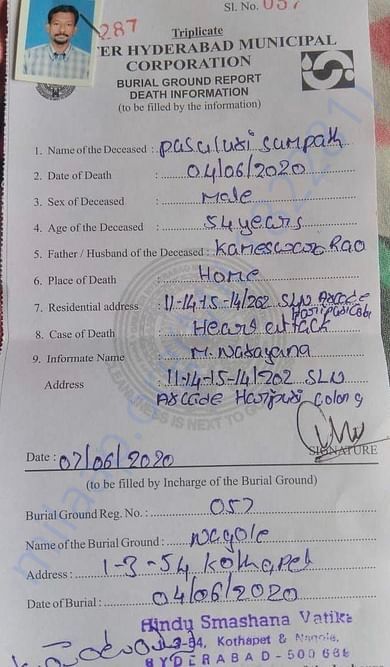 Sl. No. 057
287
Triplicate
ER HYDERABAD MUNICIPAL
CORPORATION
BURIAL GROUND REPORT
DEATH INFORMATION
(to be filled by the information)
1. Name of the Deceased : Pasuluri Sampath
2. Date of Death : 04/06/2020
3. Sex of Deceased : Male
4. Age of the Deceased : 54 years
5. Father / Husband of the Deceased : Kameswara Rao
6. Place of Death : Home
7. Residential address : 11-14-15-14/202 SLN Arcade
Haripuri Colony
8. Case of Death : Heart attack
9. Informate Name : M. Narayana
Address : 11-14-15-14/202 SLN
Arcade Haripuri Colony
SIGNATURE
Date : 07/06/2020
(to be filled by Incharge of the Burial Ground)
Burial Ground Reg. No. : 057
Name of the Burial Ground : Nagole
Address : 1-3-54 Kothapet
Date of Burial : 04/06/2020
Hindu Smashana Vatika
3-54, Kothapet & Nagole,
HYDERABAD-500 068